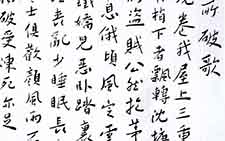 所破歌
卷我屋上三重
梢下者飄轉沉塘
盜賊公然抱茅
息俄頃風定雲
鐵嬌兒惡臥踏裏
喪亂少睡眠長
士俱歡顏風雨不
破受凍死亦足